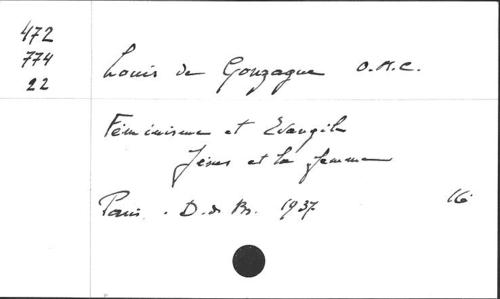 472
774
22
Louis de Gonzague O.M.C.
Féminisme et Evangile
Jésus et la femme
Paris. D.d.Br. 1937 16